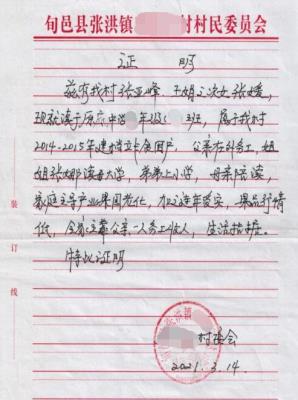 旬邑县张洪镇 村村民委员会
证 明
兹有我村张亚峰 之次女张媛,
现就读于原底中学 年级 班, 属于我村
2014-2015年建档立卡贫困户, 父亲在外务工, 姐
姐张娜读大学, 弟弟上小学, 母亲陪读,
家庭主要产业果园老化, 加之连年受灾, 果品行情
低, 全家主靠父亲一人务工收入, 生活拮据。
特此证明
村委会
2021.3.14
张洪镇
装
订
线